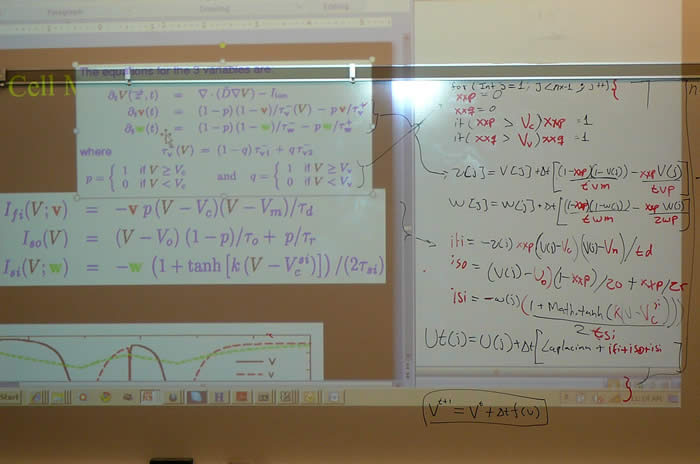 Paragraph
Drawing
Editing
Cell M
The equations for the 3 variables are:
∂tV(x⃗,t) = ∇·(D̃∇V) − Iion
∂tv(t) = (1−p)(1−v)/τv⁻(V) − pv/τv⁺
∂tw(t) = (1−p)(1−w)/τw⁻ − pw/τw⁺
where τv⁻(V) = (1−q)τv1⁻ + qτv2⁻
p = { 1 if V ≥ Vc and q = { 1 if V ≥ Vv
0 if V < Vc 0 if V < Vv
Ifi(V; v) = −v p(V − Vc)(V − Vm)/τd
Iso(V) = (V − Vo) (1−p)/τo + p/τr
Isi(V; w) = −w (1 + tanh[k(V − Vcsi)])/(2τsi)
V
v
Start
for (Int j=1; j<nx-1; j++){
xxp=0
xxq=0
if (xxp > Vc) xxp =1
if (xxq > Vv) xxq =1
v[j] = v[j]+Δt[(1-xxp)(1-v(j))/tvm − xxp v(j)/tvp]
w[j] = w[j]+Δt[(1-xxp)(1-w(j))/twm − xxp w(j)/twp]
ifi = -v(j) xxp (U(j)-Vc)(U(j)-Vm)/td
iso = (U(j)-Uo)(1-xxp)/zo + xxp/zr
isi = -w(j)(1+Math.tanh(k(U-Vcsi)))/2tsi
Ut(j) = U(j)+Δt[Laplacian + ifi+iso+isi]
}
Vt+1 = Vt + Δt f(v)